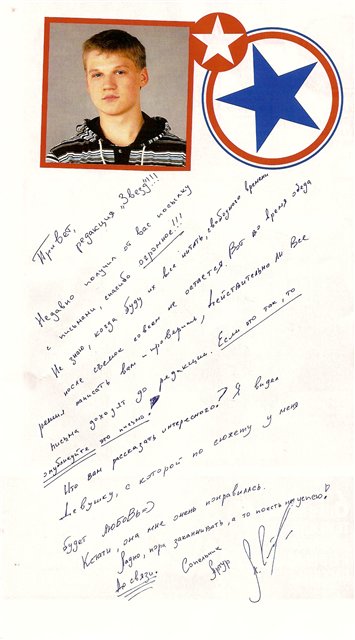 Привет,
редакция „Звезд"!!!
Недавно получил от вас посылку
с письмами, спасибо огромное!!!
Не знаю, когда буду их все читать, свободного времени
после съемок совсем не остается. Вот во время обеда
решил написать вам - проверить, действительно ли все
письма доходят до редакции. Если это так, то
опубликуйте это письмо!
Что вам рассказать интересного? Я видел
девушку, с которой по сюжету у меня
будет любовь=)
Кстати, она мне очень понравилась.
Ладно, пора заканчивать, а то поесть не успею!
До связи.
Артур